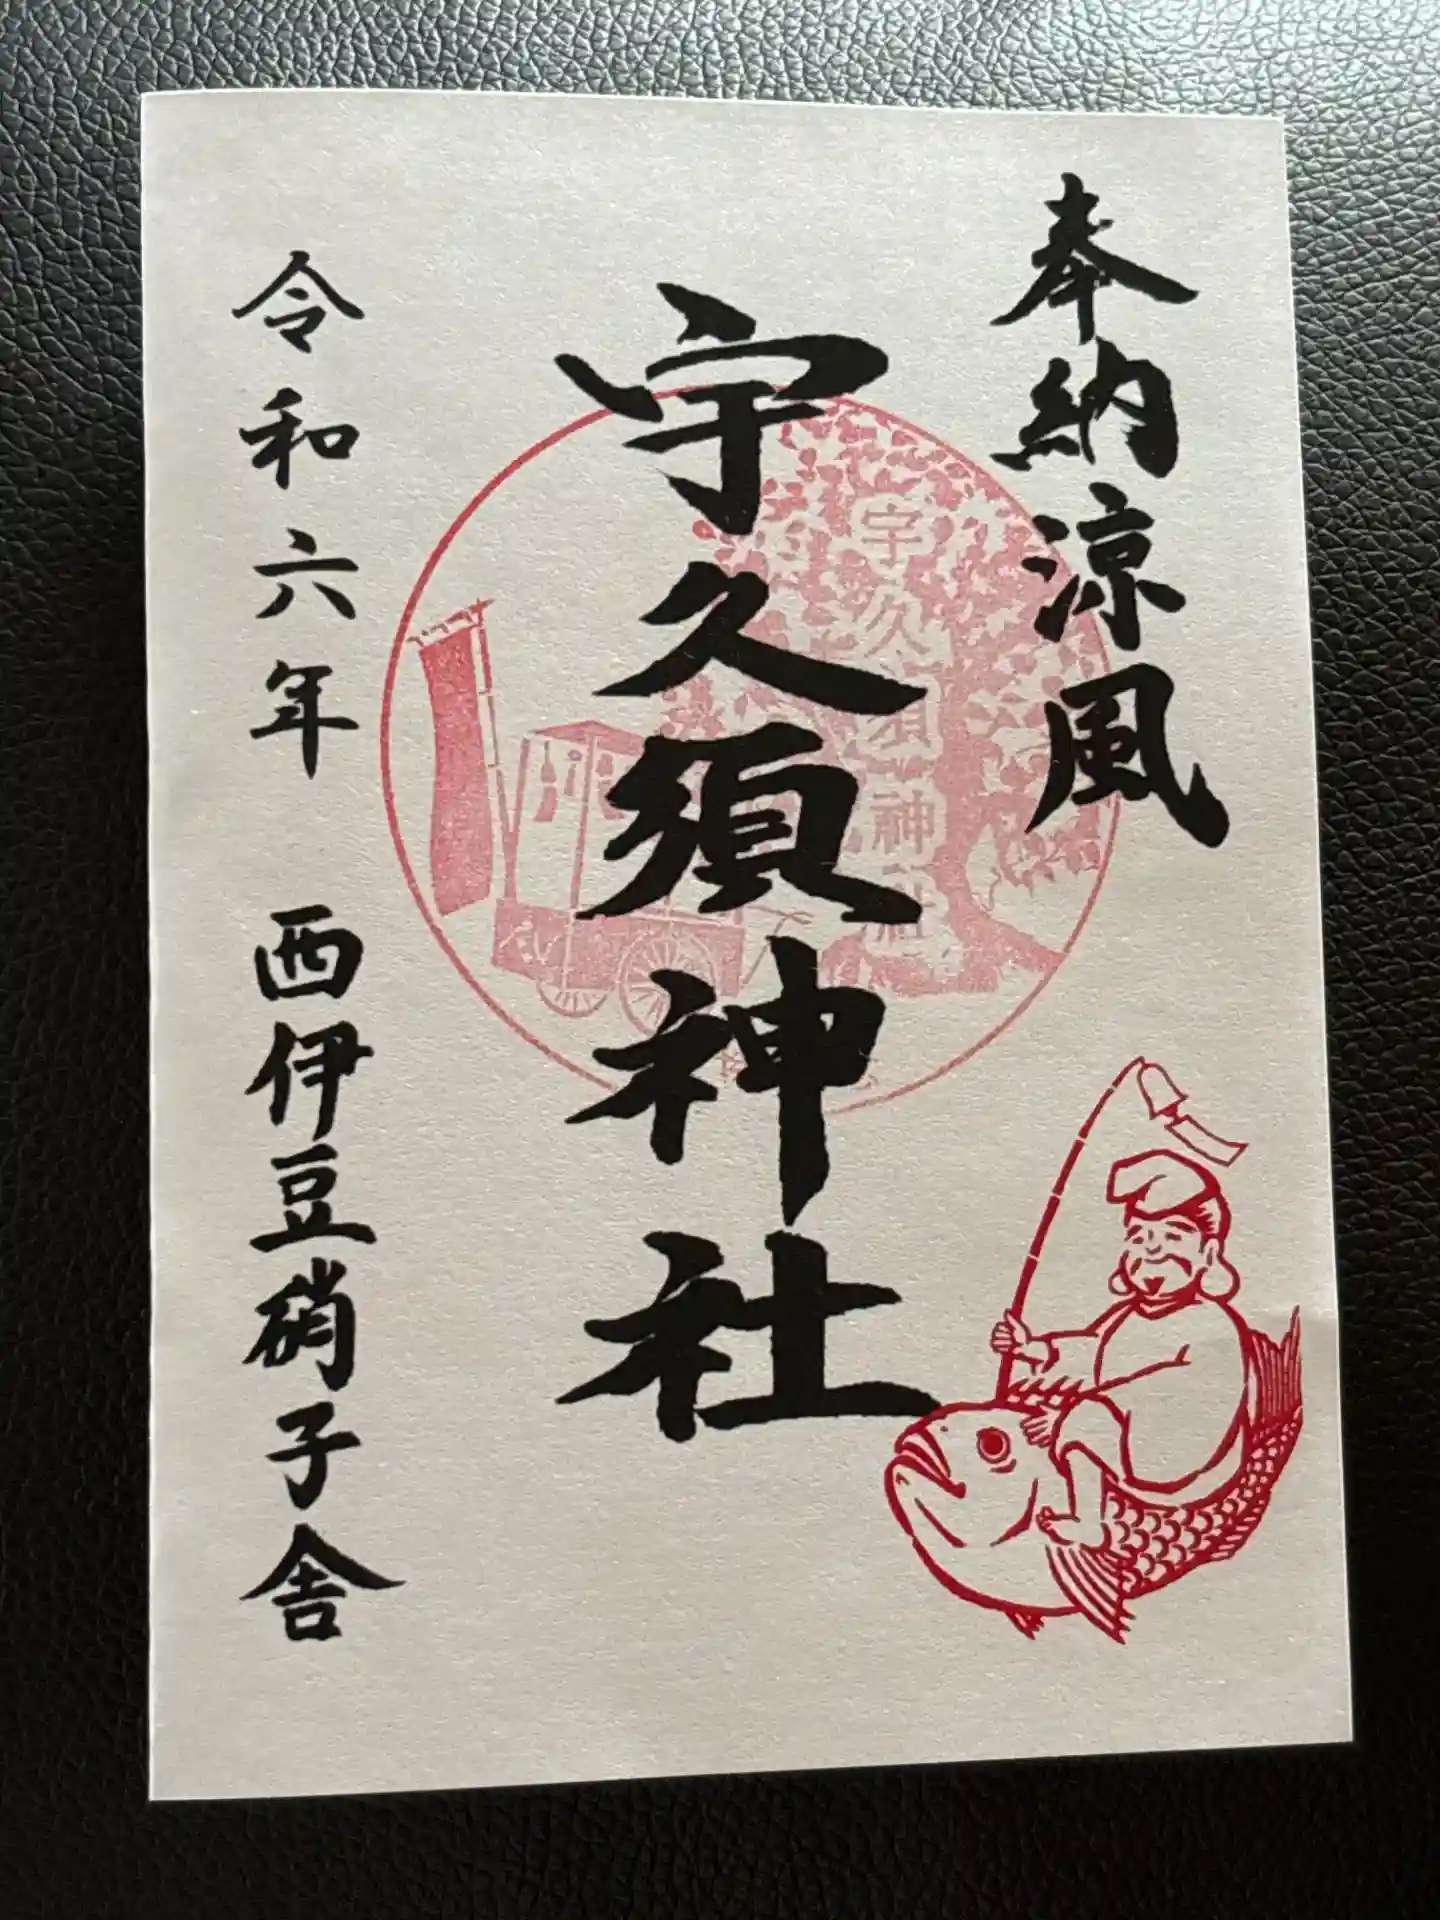 奉納涼風
宇久須神社
宇久須神社
令和六年　西伊豆硝子舎